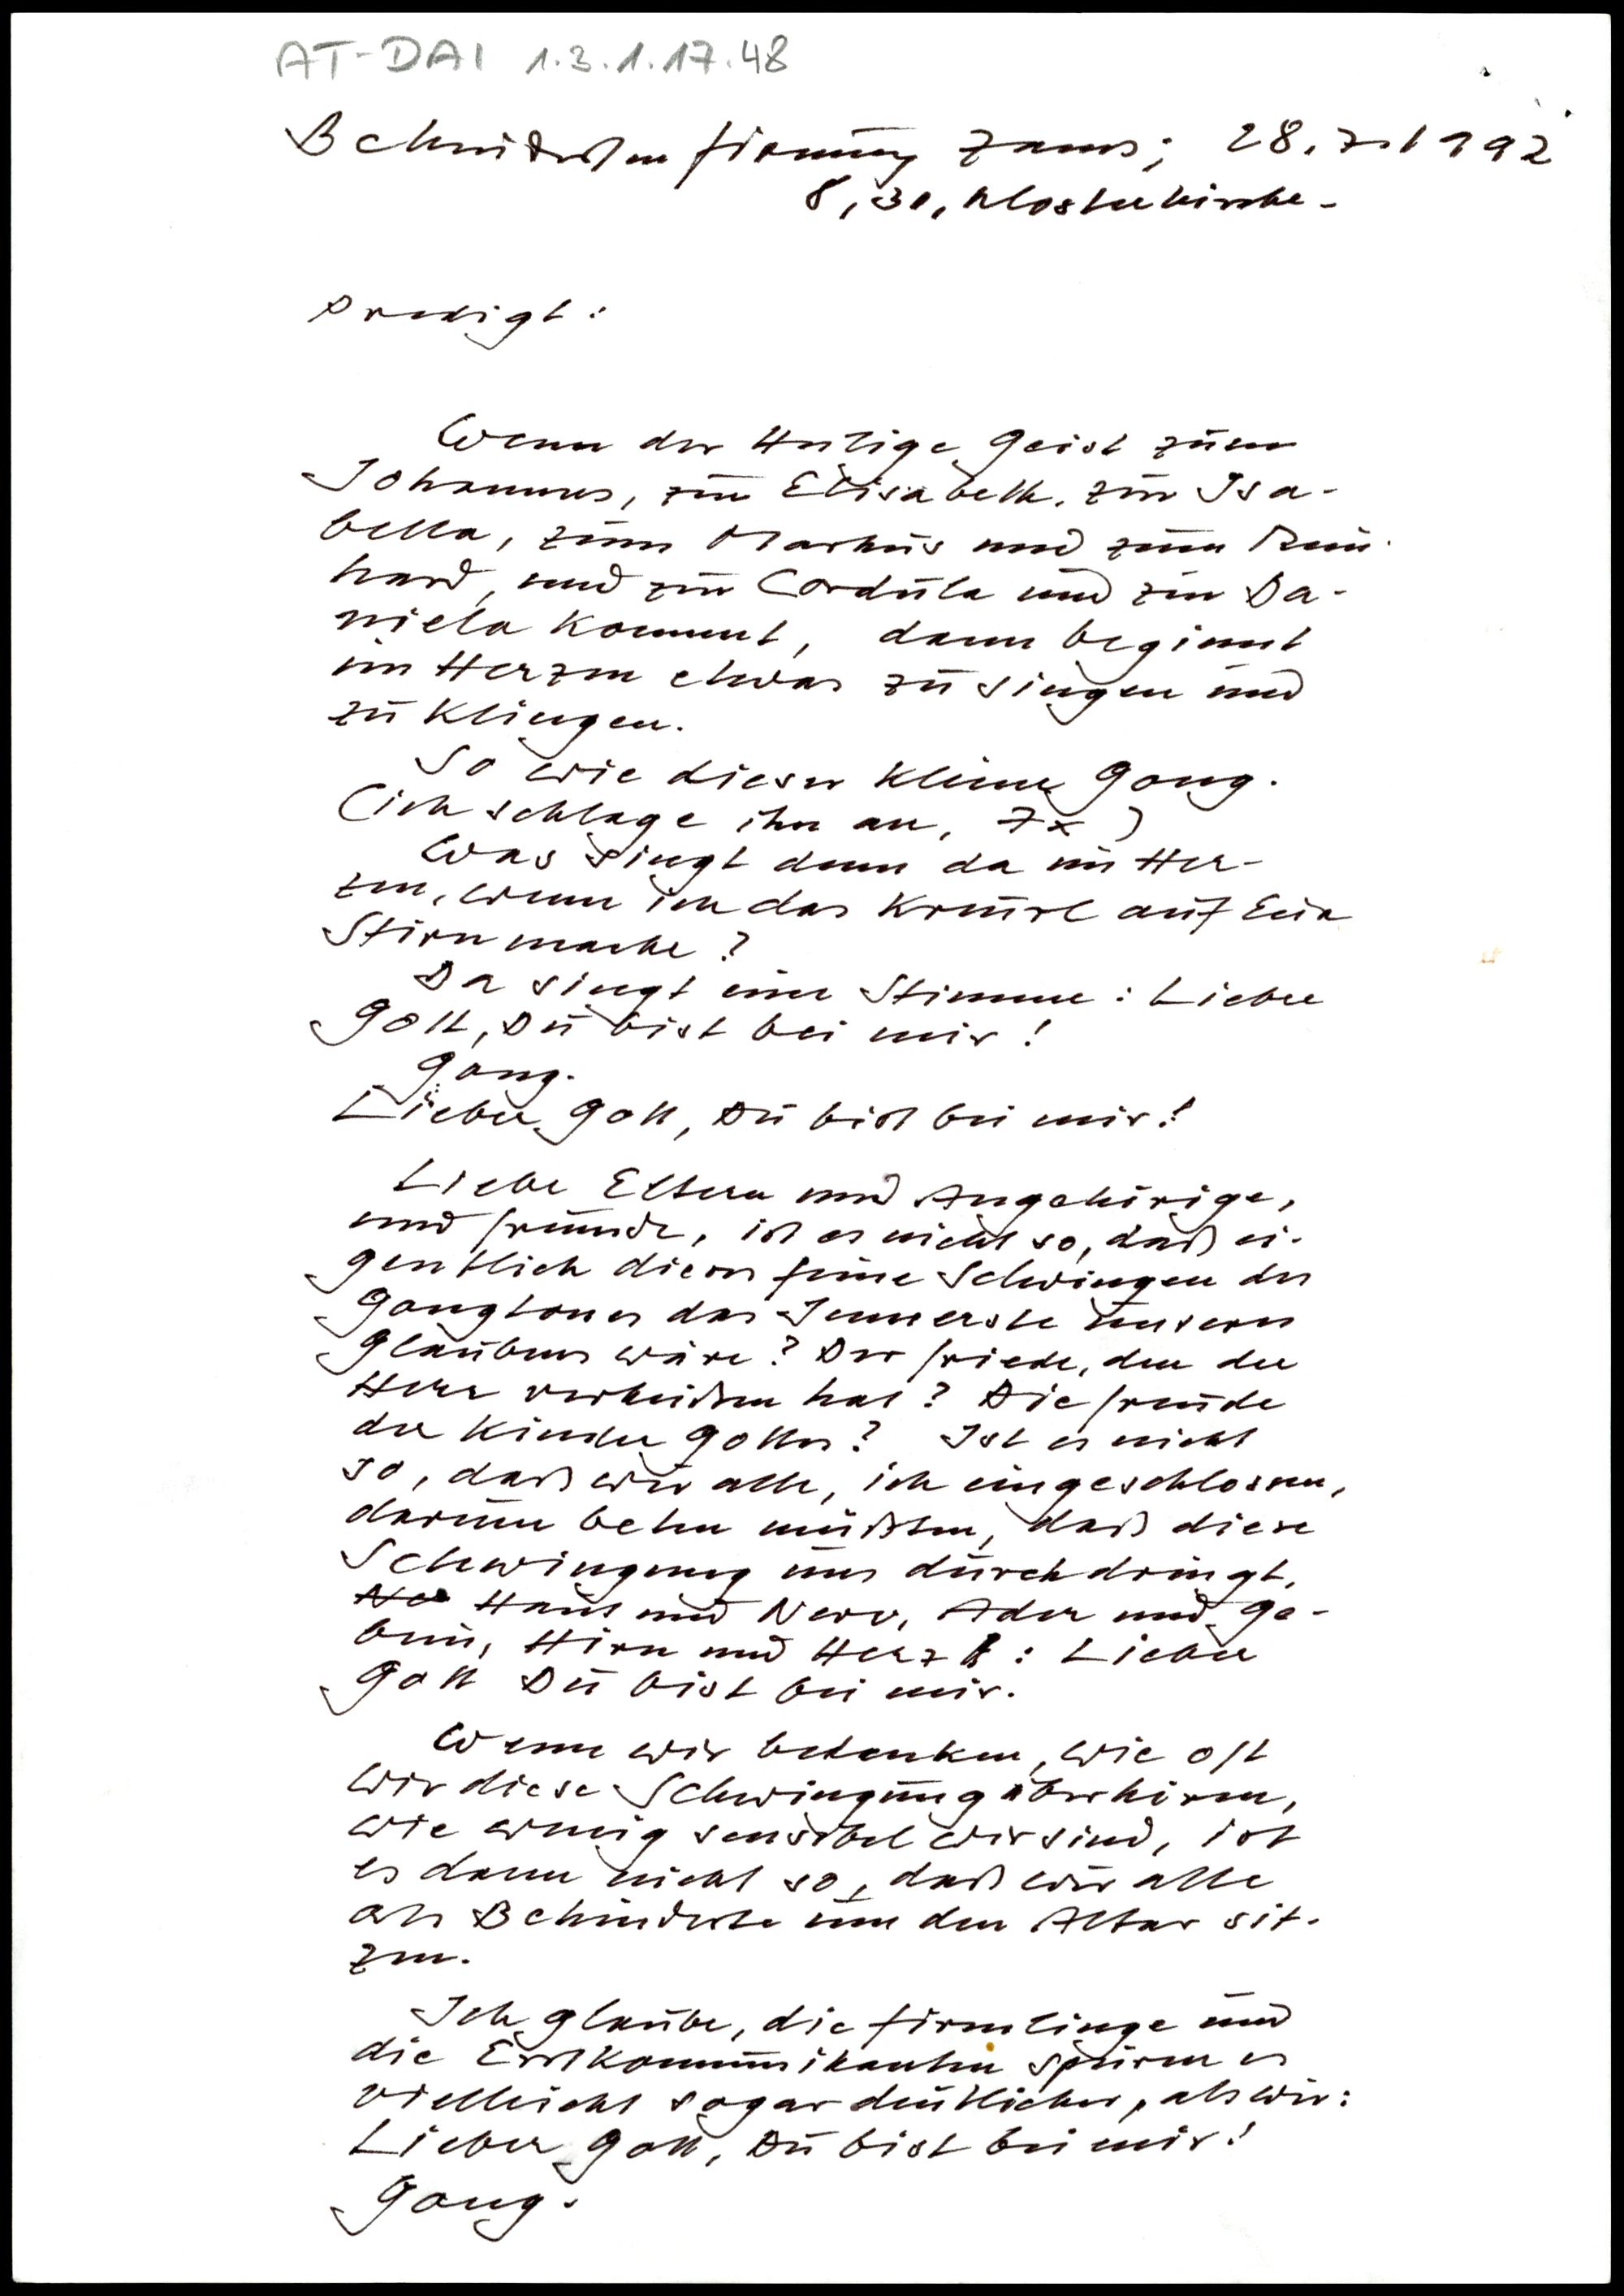 AT-DAI 1.3.1.17.48
Behindertenfirmung Zams; 28. 1992
8,30, Klosterkirche.
Predigt:
Wenn der Heilige Geist zum
Johannes, zur Elisabeth, zur Isa-
bella, zum Markus und zum Rein-
hard, und zur Cordula und zur Da-
niela kommt, dann beginnt
im Herzen etwas zu singen und
zu klingen.
So wie dieser kleine Gong.
(ich schlage ihn an, 7x)
Was singt denn da im Her-
zen, wenn ich das Kreuzl auf Eure
Stirn mache?
Da singt eine Stimme: Lieber
Gott, Du bist bei mir!
Gong.
Lieber Gott, Du bist bei mir!
Liebe Eltern und Angehörige,
und Freunde, ist es nicht so, daß ei-
gentlich dieses feine Schwingen des
Gongtones das Innerste unseres
Glaubens wäre? Der Friede, den der
Herr verheißen hat? Die Freude
der Kinder Gottes? Ist es nicht
so, daß wir alle, ich eingeschlossen,
darum beten müßten, daß diese
Schwingung uns durchdringt,
Haut und Nerv, Ader und Ge-
bein, Hirn und Herz: Lieber
Gott Du bist bei mir.
Wenn wir bedenken, wie oft
wir diese Schwingung überhören,
wie wenig sensibel wir sind, ist
es dann nicht so, daß wir alle
als Behinderte um den Altar sit-
zen.
Ich glaube, die Firmlinge und
die Erstkommunikanten spüren es
vielleicht sogar deutlicher, als wir:
Lieber Gott, Du bist bei mir!
Gong.